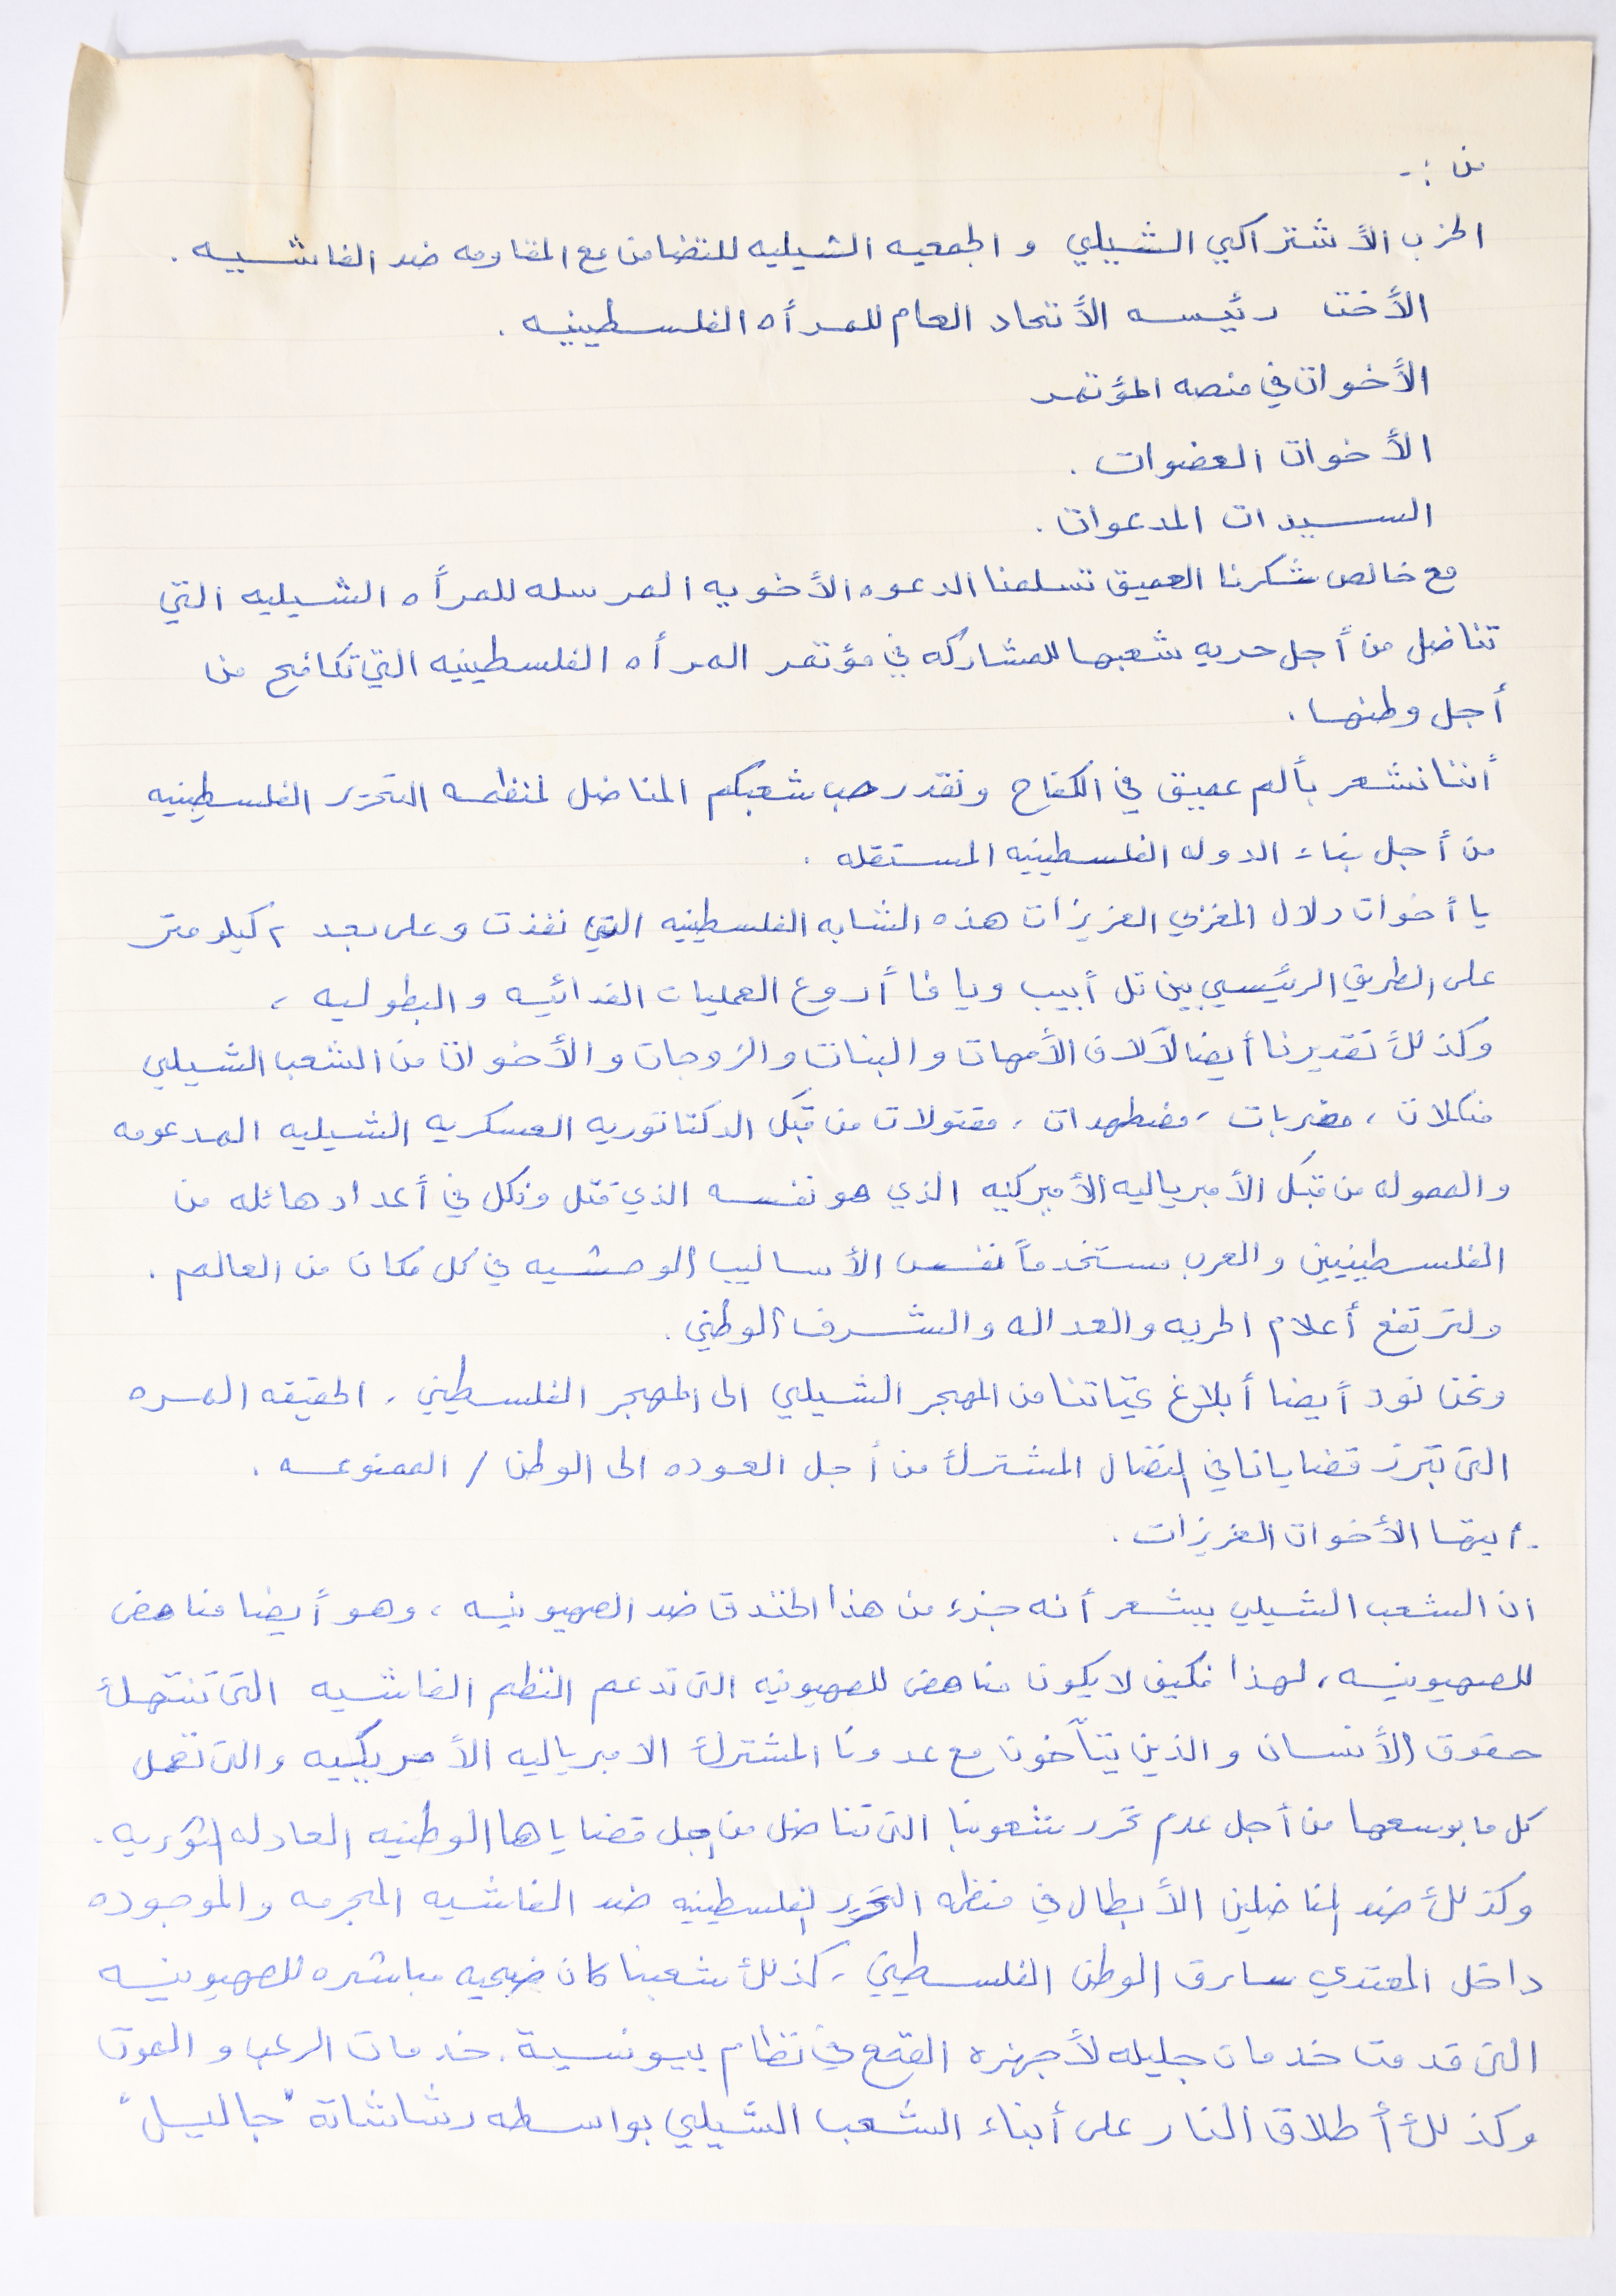 من :-
الحزب الأشتراكي الشيلي و الجمعيه الشيليه للتضامن مع المقاومه ضد الفاشيه .
الأخت رئيسه الأتحاد العام للمرأه الفلسطينيه .
الأخوات في منصه المؤتمر
الأخوات العضوات .
السيدات المدعوات .
مع خالص شكرنا العميق تسلمنا الدعوه الأخويه المرسله للمرأه الشيليه التي
تناضل من أجل حريه شعبها للمشاركه في مؤتمر المرأه الفلسطينيه التي تكافح من
أجل وطنها .
أننا نشعر بألم عميق في الكفاح ونقدر حب شعبكم المناضل لمنظمه التحرير الفلسطينيه
من أجل بناء الدوله الفلسطينيه المستقله .
يا أخوات دلال المغربي العزيزات هذه الشابه الفلسطينيه التي نفذت وعلى بعد ٢ كيلومتر
على الطريق الرئيسي بين تل أبيب ويافا أروع العمليات الفدائيه والبطوليه ،
وكذلك تقديرنا أيضا لآلاف الأمهات والبنات والزوجات والأخوات من الشعب الشيلي
منكلات ، مضربات ، مضطهدات ، مقتولات من قبَل الدكتاتوريه العسكريه الشيليه المدعومه
والمموله من قبَل الأمبرياليه الأميركيه الذي هو نفسه الذي قتل ونكل في أعداد هائله من
الفلسطينيين والعرب مستخدماً نفس الأساليب الوحشيه في كل مكان من العالم .
ولترتفع أعلام الحريه والعداله والشرف الوطني .
ونحن نود أيضا أبلاغ تحياتنا من المهجر الشيلي الى المهجر الفلسطيني ، الحقيقه المره
التى تبرز قضايانا في النضال المشترك من أجل العوده الى الوطن / الممنوعه .
. ايتها الأخوات العزيزات .
ان الشعب الشيلي يشعر أنه جزء من هذا الخندق ضد الصهيونيه ، وهو أيضا مناهض
للصهيونيه ، لهذا فكيف لا يكون مناهض للصهيونيه التى تدعم النظم الفاشيه التى تنتهك
حقوق الأنسان والذين يتآخون مع عدونا المشترك الامبرياليه الأمريكيه والتى تعمل
كل ما بوسعها من أجل عدم تحرر شعوبنا التى تناضل من اجل قضاياها الوطنيه العادله الثوريه .
وكذلك ضد المناضلين الأبطال في منظمه التحرير الفلسطينيه ضد الفاشيه المجرمه والموجوده
داخل المعتدي سارق الوطن الفلسطيني ، كذلك شعبنا كان ضحيه مباشره للصهيونيه
التى قدمت خدمات جليله لأجهزه القمع في نظام بيونسية . خدمات الرعب و الموت
وكذلك أطلاق النار على أبناء الشعب الشيلي بواسطه رشاشات "جاليل"